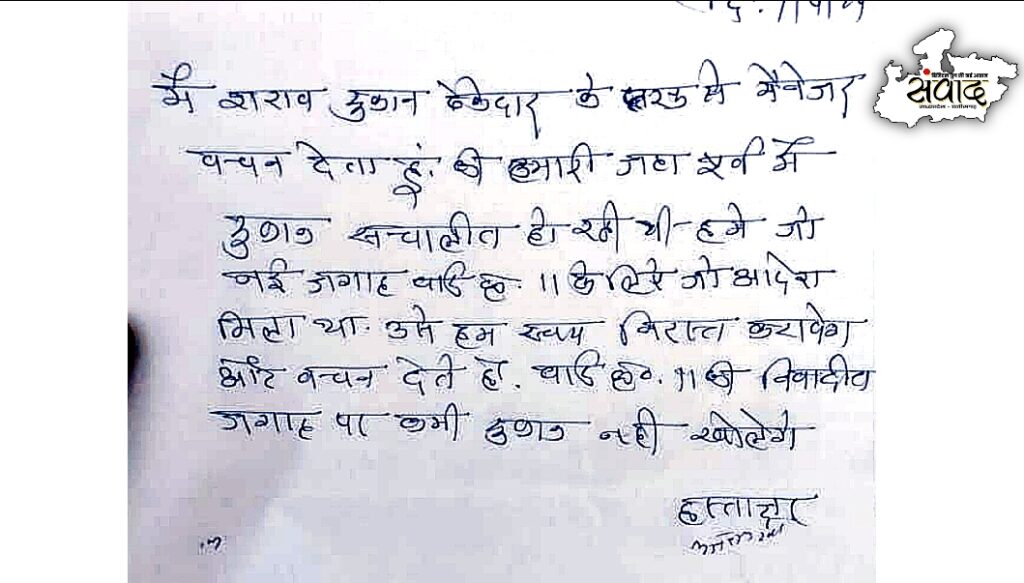 मै शराब दुकान ठेकेदार के तरफ से मैनेजर
वचन देता हूं. की हमारी जहा पूर्व मे
दुकान सचालीत हो रही थी हमे जो
नई जगाह वार्ड क्र. 11 के लिये जो आदेश
मिला था. उसे हम स्वयं निरास्त करायेगे
और वचन देते है. वार्ड क्र. 11 की विवादीत
जगाह पर कभी दुकान नही खोलेगे
हस्ताक्षर
संवाद